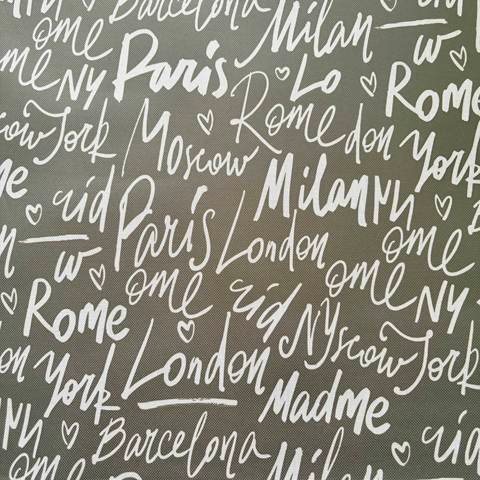 Barcelona
ome Milan w
ome NY Paris Lo Rome
scow York Moscow Rome don York
me rid Paris London Milan
w ome ome
Rome rid NYscow York
on York London Madme
Barcelona rid
ome Milan ome